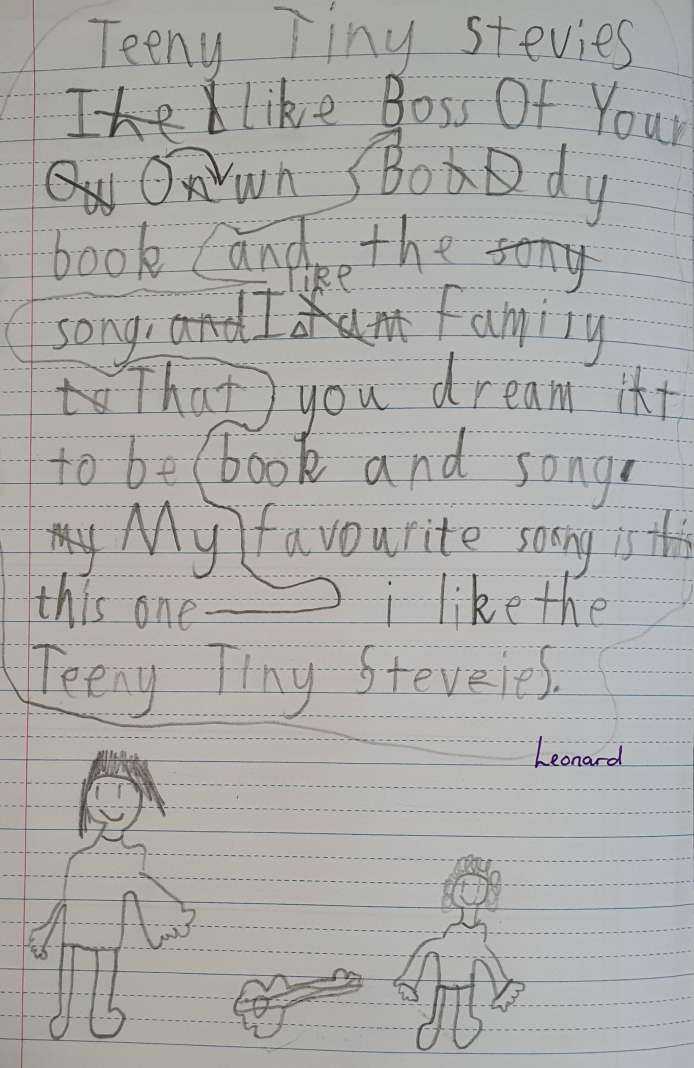 Teeny Tiny Stevies
I like Boss Of Your
Own Body
book and the
song, I like family
That you dream it
to be book and song.
My favourite song is
this one i like the
Teeny Tiny Steveies.
Leonard